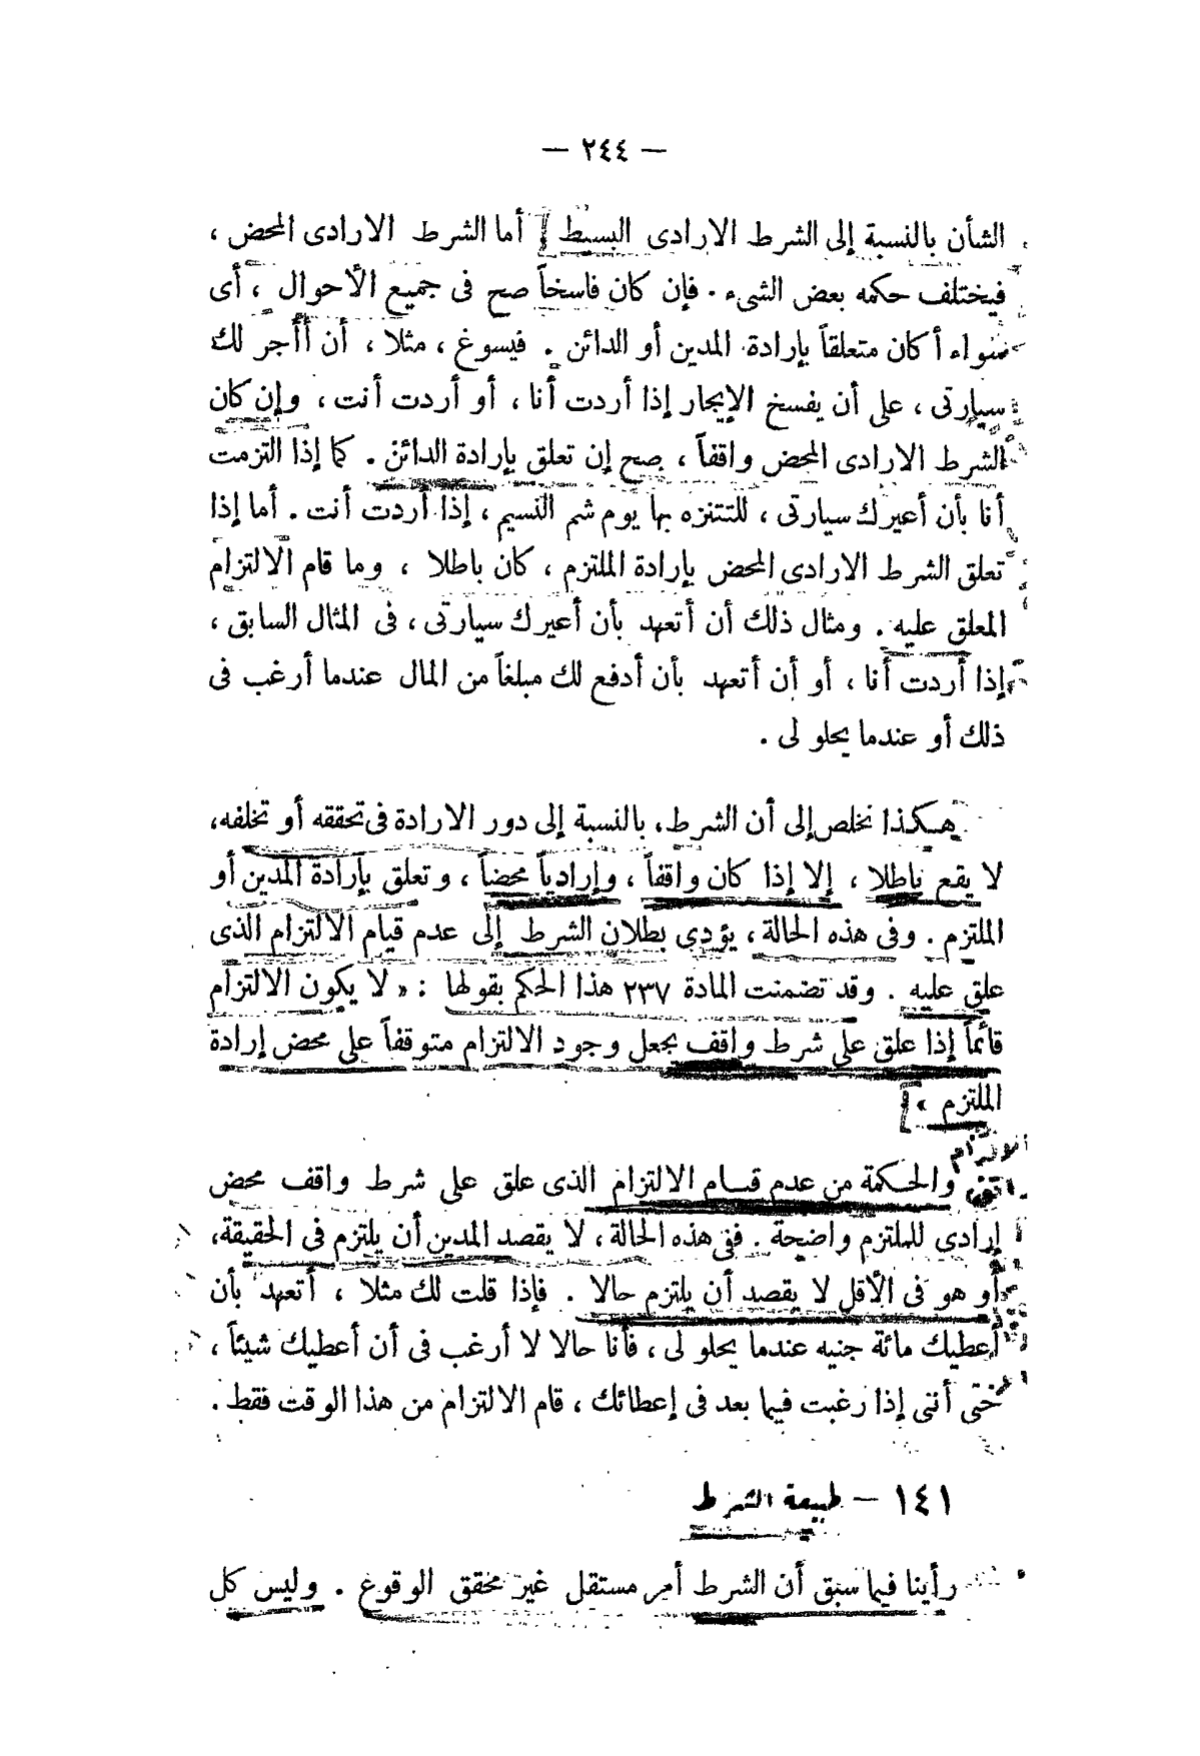 — ٢٤٤ —
الشأن بالنسبة إلى الشرط الارادى البسيط] أما الشرط الارادى المحض ،
فيختلف حكمه بعض الشىء . فإن كان فاسخاً صح فى جميع الأحوال ، أى
سواء أكان متعلقاً بإرادة المدين أو الدائن . فيسوغ ، مثلا ، أن أأجر لك
سيارتى ، على أن يفسخ الإيجار إذا أردت أنا ، أو أردت أنت ، وإن كان
الشرط الارادى المحض واقفاً ، صح إن تعلق بإرادة الدائن . كما إذا التزمت
أنا بأن أعيرك سيارتى ، للتتنزه بها يوم شم النسيم ، إذا أردت أنت . أما إذا
تعلق الشرط الارادى المحض بإرادة الملتزم ، كان باطلا ، وما قام الالتزام
المعلق عليه . ومثال ذلك أن أتعهد بأن أعيرك سيارتى ، فى المثال السابق ،
إذا أردت أنا ، أو أن أتعهد بأن أدفع لك مبلغاً من المال عندما أرغب فى
ذلك أو عندما يحلو لى .
هكذا نخلص إلى أن الشرط ، بالنسبة إلى دور الارادة فى تحققه أو تخلفه،
لا يقع باطلا ، إلا إذا كان واقفاً ، وإرادياً محضاً ، وتعلق بإرادة المدين أو
الملتزم . وفى هذه الحالة ، يؤدى بطلان الشرط إلى عدم قيام الالتزام الذى
علق عليه . وقد تضمنت المادة ٢٣٧ هذا الحكم بقولها : « لا يكون الالتزام
قائماً إذا علق على شرط واقف يجعل وجود الالتزام متوقفاً على محض إرادة
الملتزم »]
الالتزام
والحكمة من عدم قيام الالتزام الذى علق على شرط واقف محض
إرادى للملتزم واضحة . ففى هذه الحالة ، لا يقصد المدين أن يلتزم فى الحقيقة،
أو هو فى الأقل لا يقصد أن يلتزم حالا . فإذا قلت لك مثلا ، أتعهد بأن
أعطيك مائة جنيه عندما يحلو لى ، فأنا حالا لا أرغب فى أن أعطيك شيئاً ،
حتى أننى إذا رغبت فيما بعد فى إعطائك ، قام الالتزام من هذا الوقت فقط .
١٤١ — طبيعة الشرط
رأينا فيما سبق أن الشرط أمر مستقل غير محقق الوقوع . وليس كل